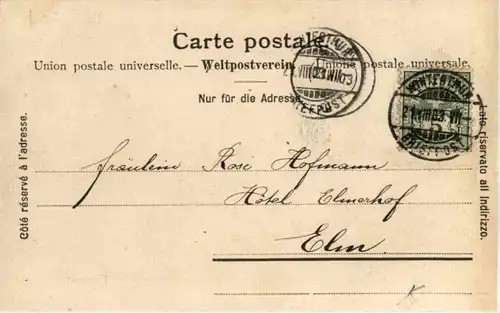 Carte postale.
Union postale universelle. — Weltpostverein. — Unione postale universale.
Nur für die Adresse.
WINTERTHUR
21.VIII.03
BRIEFPOST
WINTERTHUR
21.VIII.03.VII
5
BRIEFPOST
Côté réservé à l'adresse.
Lato riservato all' Indirizzo.
Fräulein Rosi Hofmann
Hôtel Elmerhof
Elm